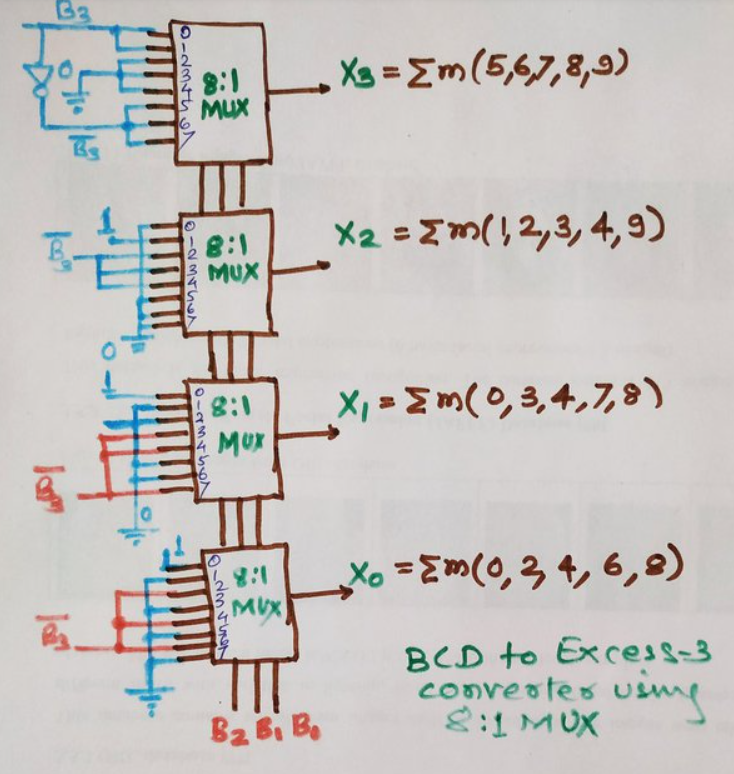 B3
0
B̅3
0
1
2
3
4
5
6
7
8:1
MUX
X3 = Σm(5,6,7,8,9)
1
B̅3
0
0
1
2
3
4
5
6
7
8:1
MUX
X2 = Σm(1,2,3,4,9)
1
B̅3
0
0
1
2
3
4
5
6
7
8:1
MUX
X1 = Σm(0,3,4,7,8)
1
B̅3
0
1
2
3
4
5
6
7
8:1
MUX
X0 = Σm(0,2,4,6,8)
B2 B1 B0
BCD to Excess-3
converter using
8:1 MUX